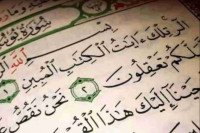 سُورَةُ يُوسُ
بِسْمِ ٱللَّهِ
الٓر تِلْكَ ءَايَٰتُ ٱلْكِتَٰبِ ٱلْمُبِينِ ١
لَّكُمْ تَعْقِلُونَ ٢ نَحْنُ نَقُصُّ عَ
حَيْنَآ إِلَيْكَ هَٰذَا ٱلْقُرْ